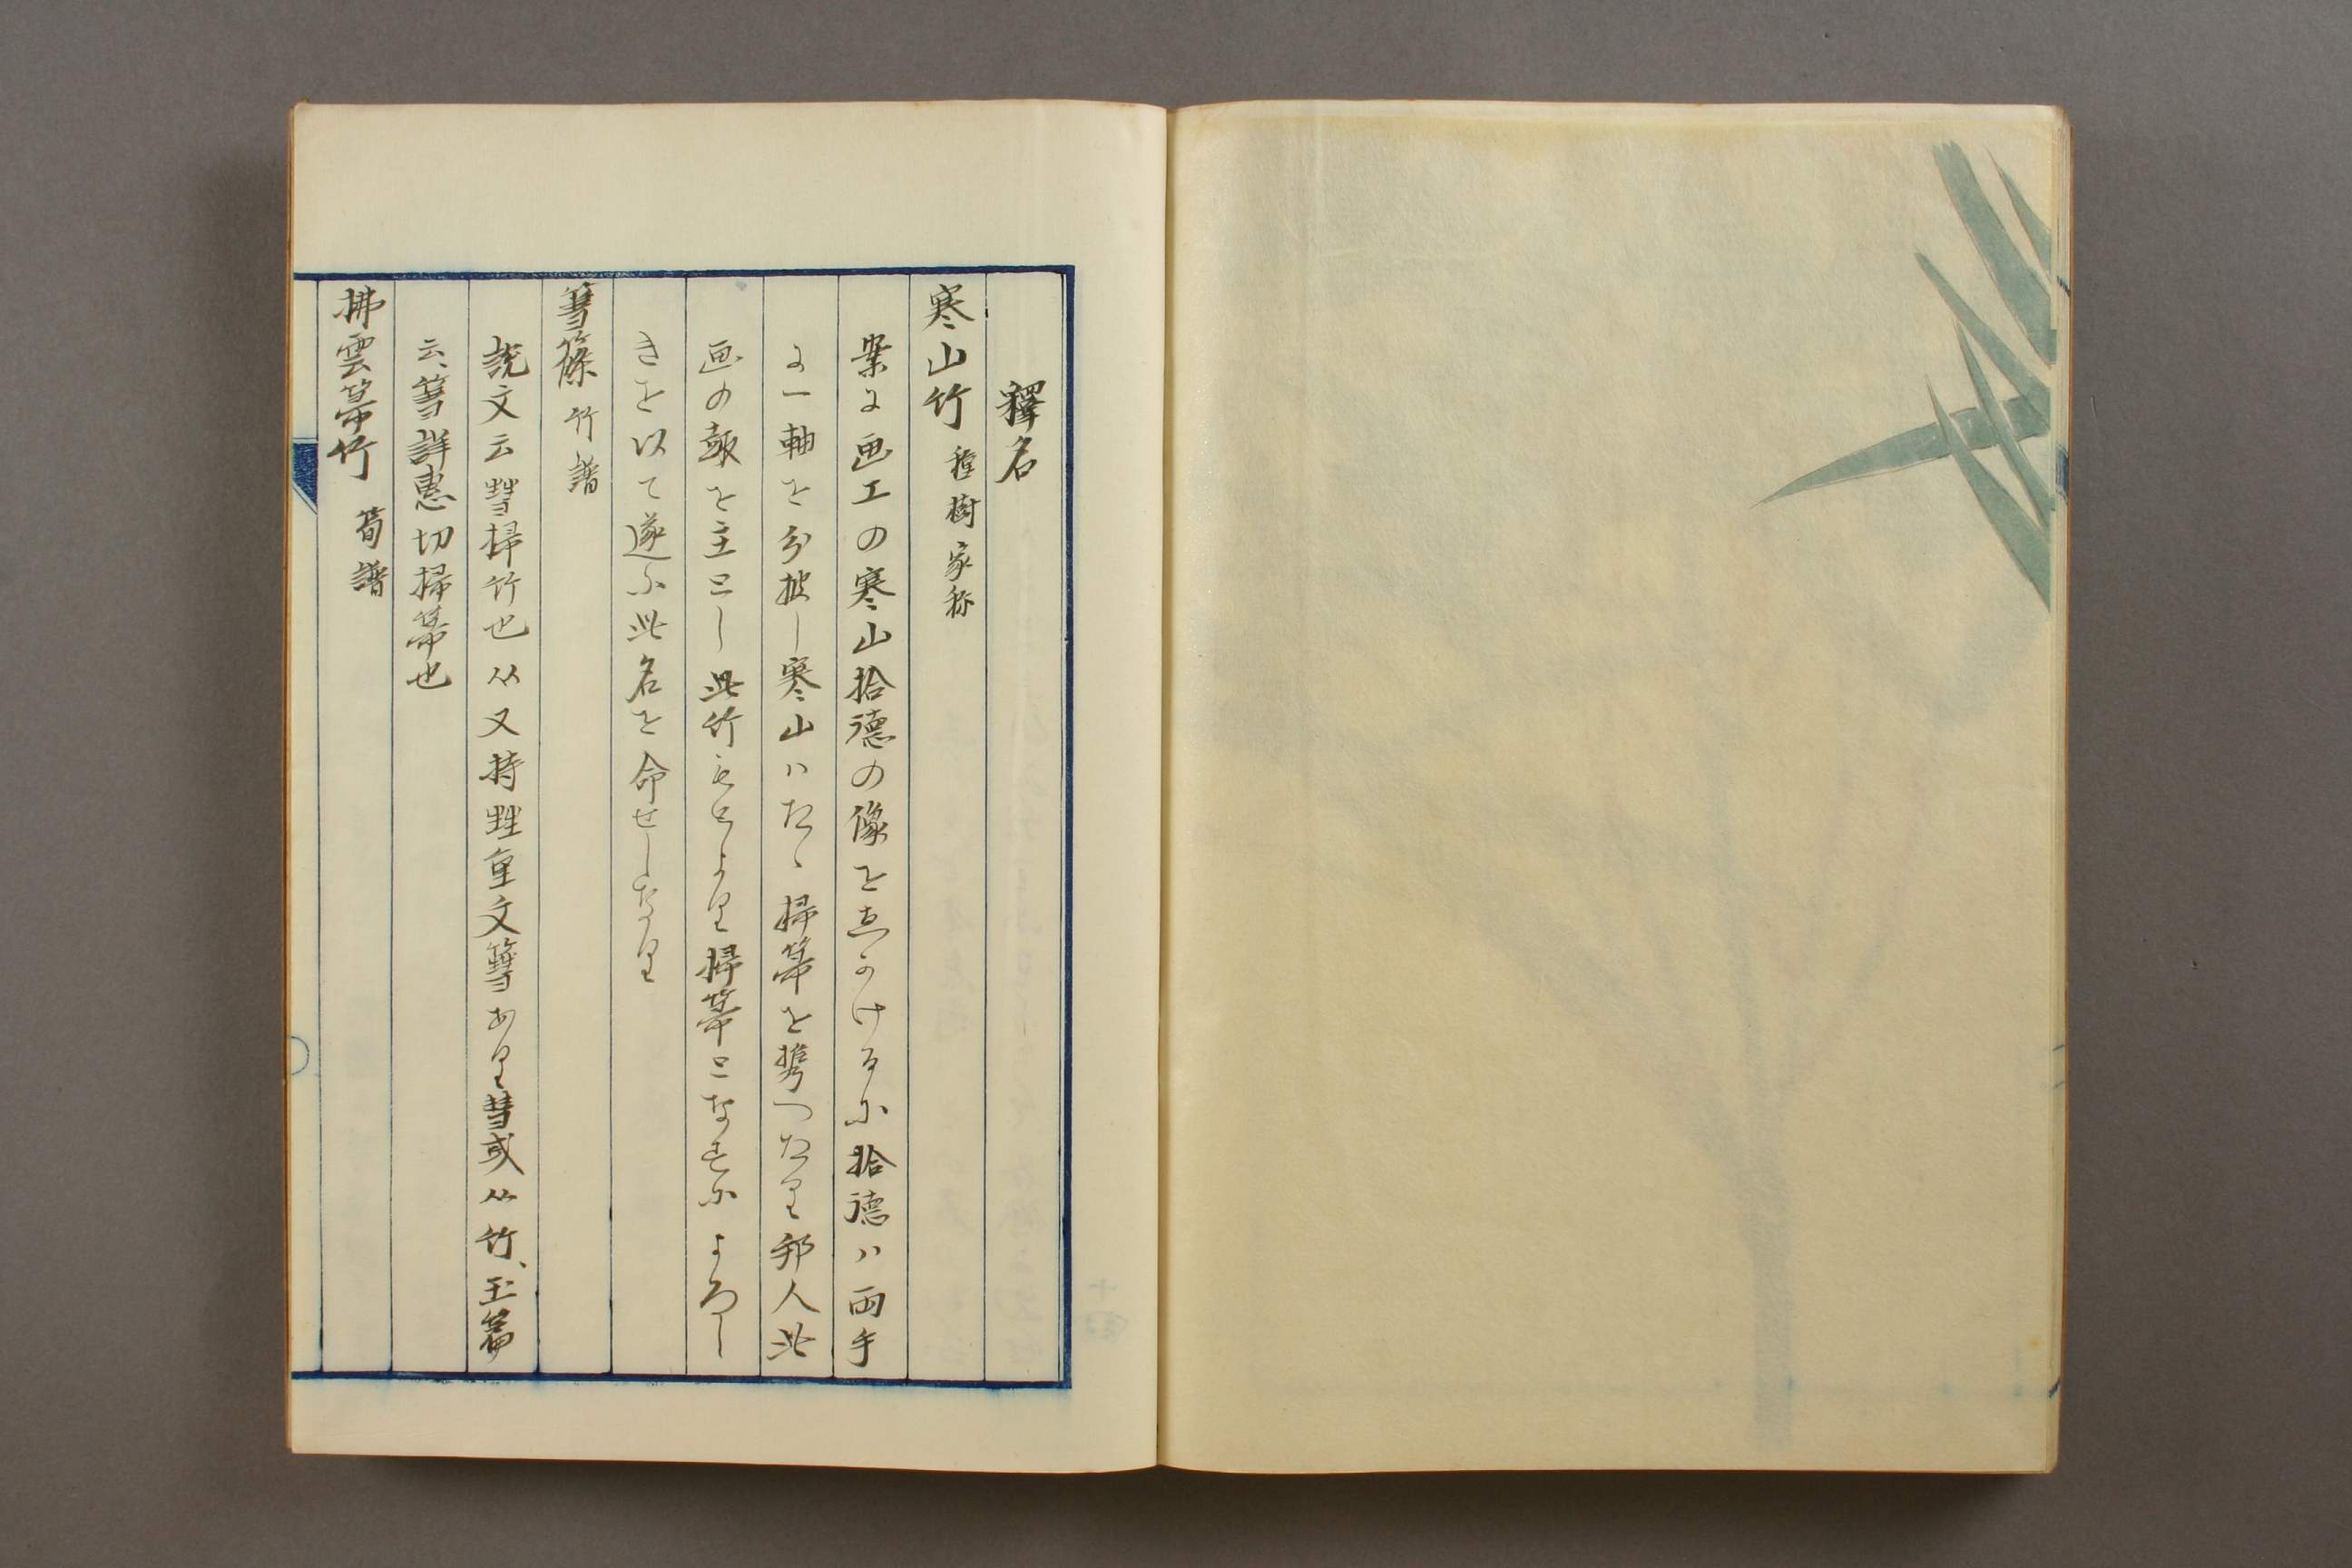 釋名
寒山竹 種樹家称
案に画工の寒山拾德の像を画かけるに拾德ハ両手
に一軸を分披し寒山ハたゝ掃箒を携へたり邦人此
画の趣を主とし此竹もとより掃箒となすによろし
きを以て遂に此名を命せしなり
篲篠 竹譜
說文云彗掃竹也从又持甡重文篲あり彗或从竹、玉篇
云、篲詳惠切掃箒也
拂雲箒竹 筍譜